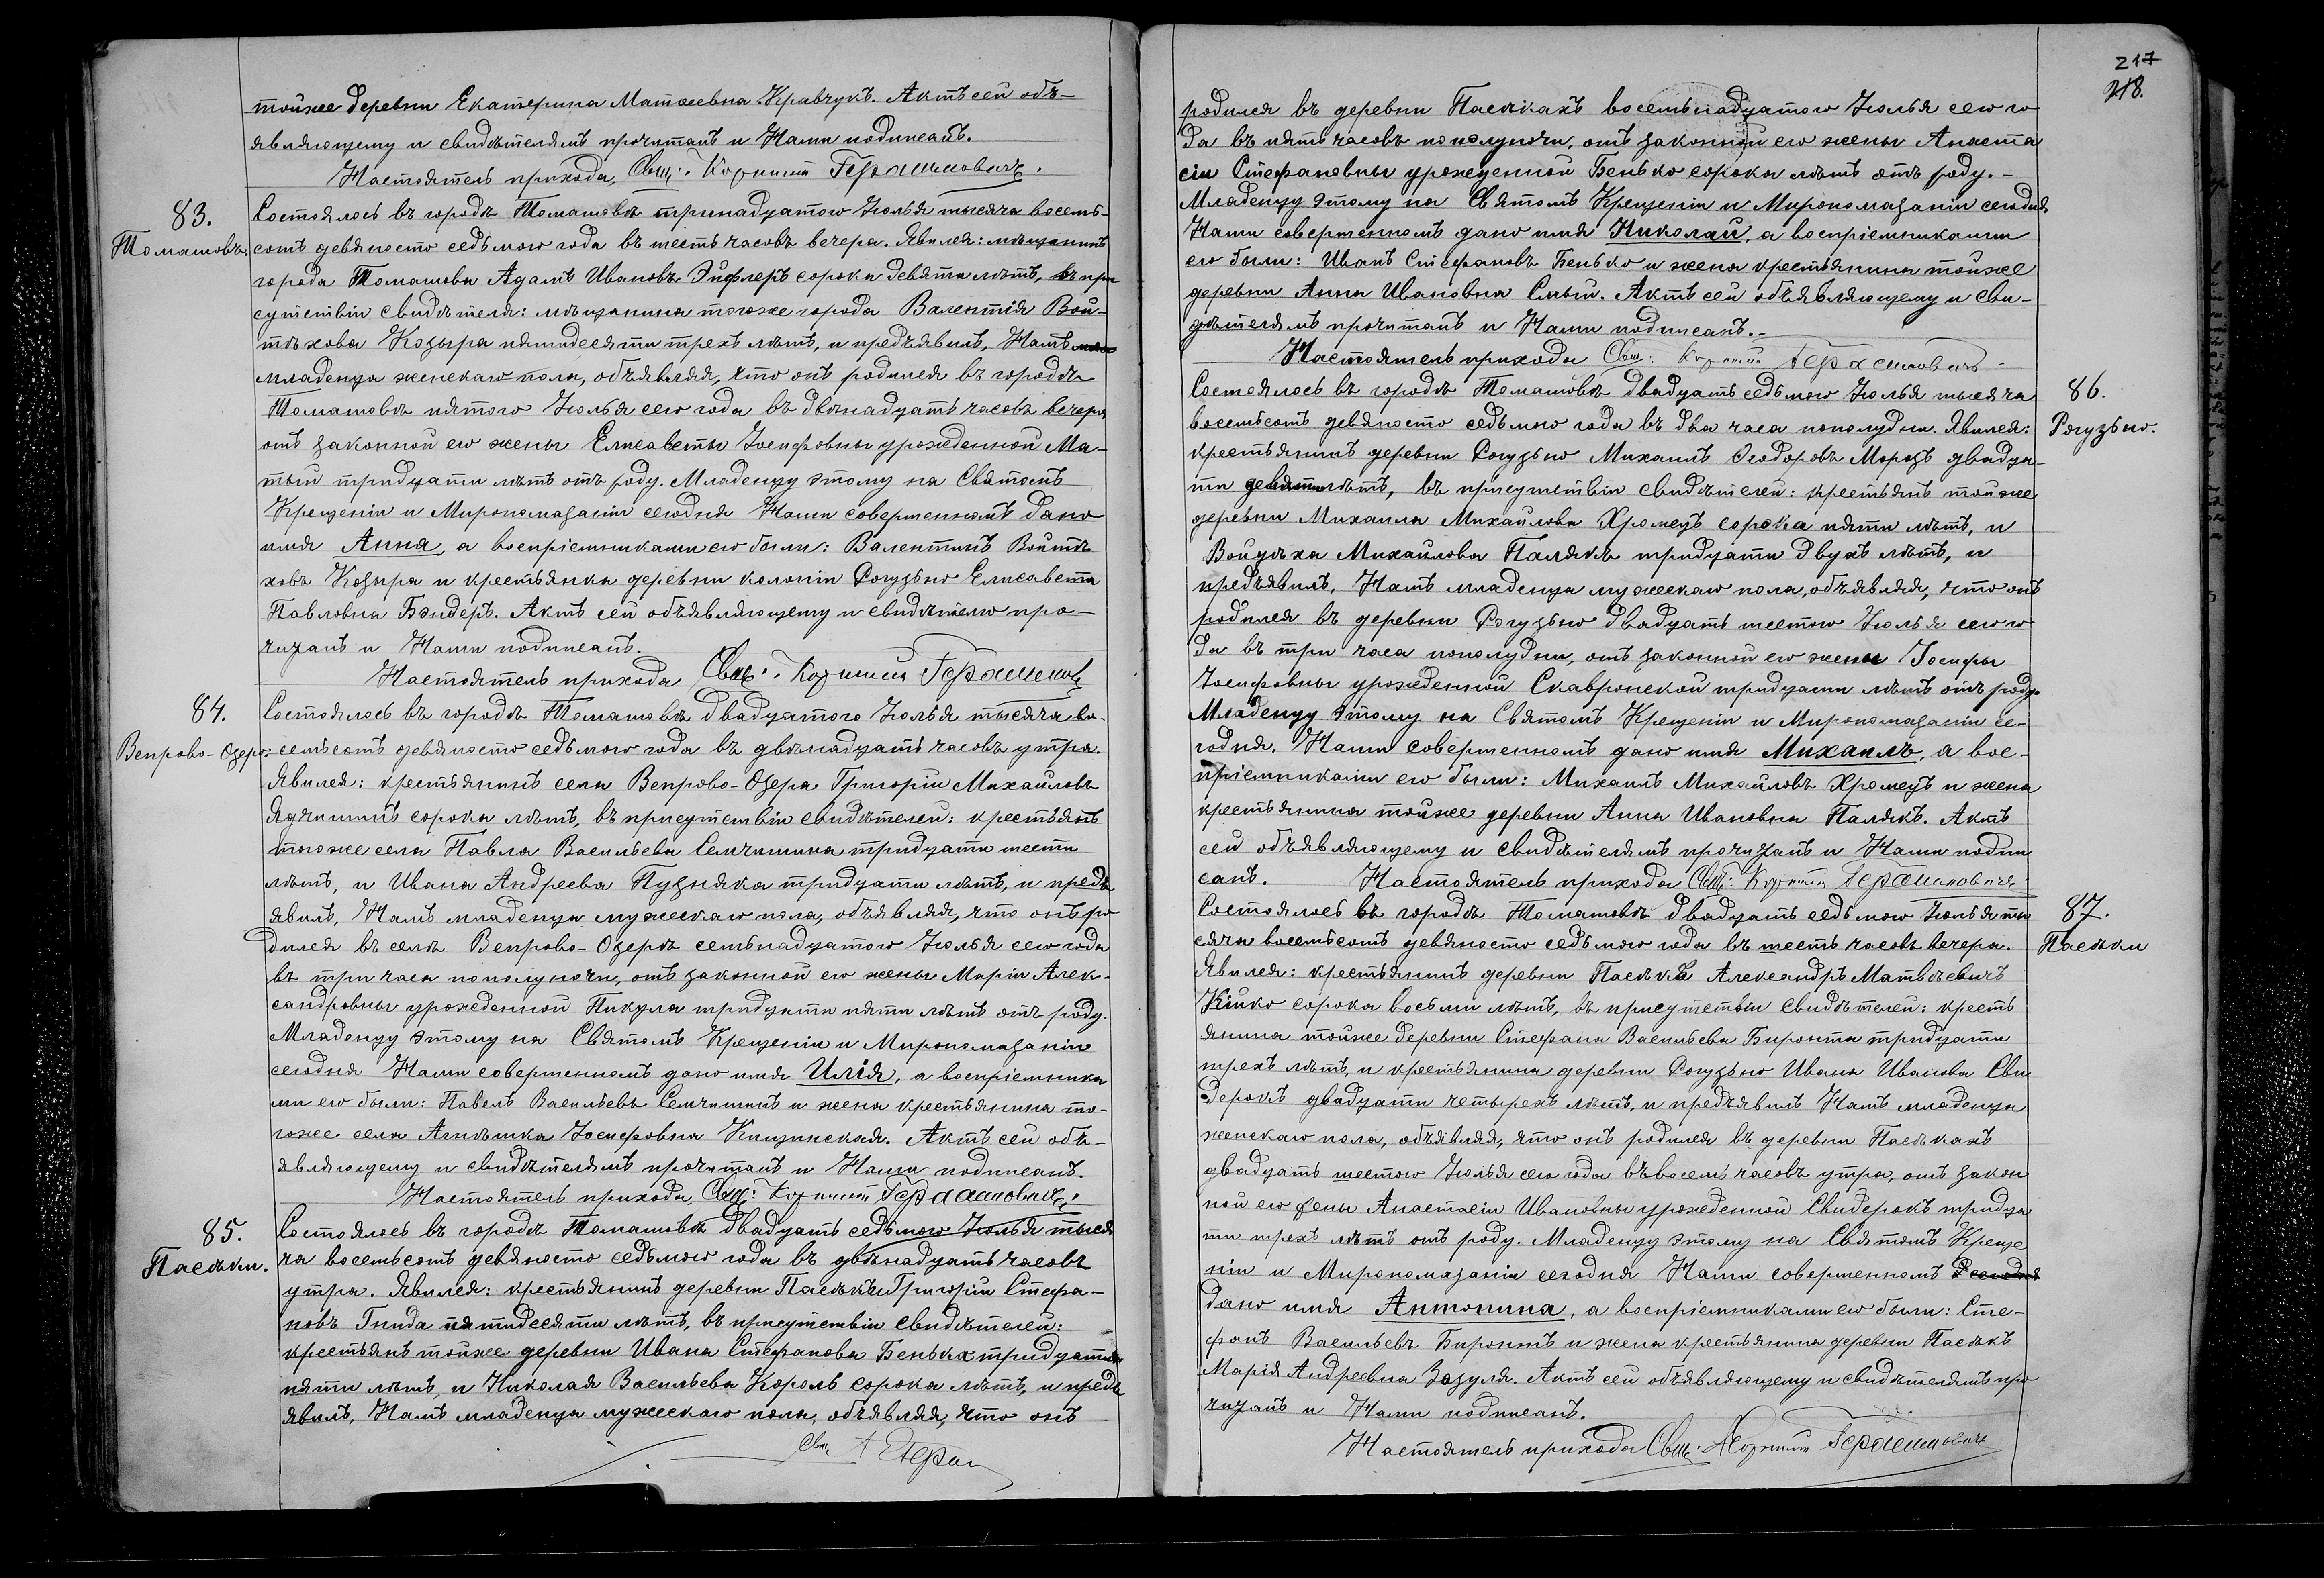 тойже деревни Екатерина Матѳеевна Кравчукъ. Актъ сей объ-
являющему и свидѣтелямъ прочитанъ и Нами подписанъ.
Настоятель прихода, Свящ: Корнилій Герасимовичъ.
83.
Томашовъ.
Состоялось въ городѣ Томашовѣ тринадцатого Іюлья тысяча восемь-
сотъ девяносто седьмого года въ шесть часовъ вечера. Явился: мѣщанинъ
города Томашова Адамъ Ивановъ Эйфлеръ сорока девяти лѣтъ, въ при
сутствіи свидѣтеля: мѣщанина тогоже города Валентія Вой-
тѣхова Козыра пятидесяти трехъ лѣтъ, и предъявилъ, Намъ
младенца женскаго пола, объявляя, что онъ родился въ городѣ
Томашовѣ пятого Іюлья сего года въ двѣнадцать часовъ вечера
отъ законной его жены Елисаветы Іосифовны урожденной Ма-
тый тридцати лѣтъ отъ роду. Младенцу этому на Святомъ
Крещеніи и Миропомазаніи сегодня Нами совершенномъ дано
имя Анна, а воспріемниками его были: Валентинъ Войтѣ
ховъ Козыра и крестьянка деревни колоніи Рогузьно Елисавета
Павловна Бэндеръ. Актъ сей объявляющему и свидѣтелю про-
читанъ и Нами подписанъ.
Настоятель прихода Свящ: Корнилій Герасимов
84.
Вепрово-Озеро.
Состоялось въ городѣ Томашовѣ двадцатого Іюлья тысяча во-
семьсотъ девяносто седьмого года въ двѣнадцать часовъ утра.
Явился: крестьянинъ села Вепрово-Озера Григорій Михайловъ
Ядчишинъ сорока лѣтъ, въ присутствіи свидѣтелей: крестьянъ
тогоже села Павла Васильева Семчишина тридцати шести
лѣтъ, и Ивана Андреева Пузняка тридцати лѣтъ, и предъ
явилъ, Намъ младенца мужескаго пола, объявляя, что онъ ро
дился въ селѣ Вепрово-Озерѣ семьнадцатого Іюлья сего года
въ три часа пополуночи, отъ законной его жены Маріи Алек-
сандровны урожденной Пикула тридцати пяти лѣтъ отъ роду.
Младенцу этому на Святомъ Крещеніи и Миропомазаніи
сегодня Нами совершенномъ дано имя Илія, а воспріемника
ми его были: Павелъ Васильевъ Семчишинъ и жена крестьянина то-
гоже села Агнѣшка Іосифовна Кицинская. Актъ сей объ-
являющему и свидѣтелямъ прочитанъ и Нами подписанъ.
Настоятель прихода, Свящ: Корнилій Герасимовичъ.
85.
Пасѣки.
Состоялось въ городѣ Томашовѣ двадцать седьмого Іюлья тыся
ча восемьсотъ девяносто седьмого года въ двѣнадцать часовъ
утра. Явился: крестьянинъ деревни Пасѣкъ Григорій Стефа-
новъ Гнида пятидесяти лѣтъ, въ присутствіи свидѣтелей:
крестьянъ тойже деревни Ивана Стефанова Бенька тридцати
пяти лѣтъ, и Николая Васильева Король сорока лѣтъ, и предъ
явилъ, Намъ младенца мужескаго пола, объявляя, что онъ
Свящ.
217
218.
родился въ деревни Пасѣкахъ восемьнадцатого Іюлья сего го
да въ пять часовъ пополуночи, отъ законной его жены Анаста
сіи Стефановны урожденной Бенько сорока лѣтъ отъ роду.-
Младенцу этому на Святомъ Крещеніи и Миропомазаніи сегодня
Нами совершенномъ дано имя Николай, а воспріемниками
его были: Иванъ Стефановъ Бенько и жена крестьянина тойже
деревни Анна Ивановна Смый. Актъ сей объявляющему и сви-
дѣтелямъ прочитанъ и Нами подписанъ.-
Настоятель прихода Свящ: Корнилій Герасимовичъ
86.
Рогузьно.
Состоялось въ городѣ Томашовѣ двадцать седьмого Іюлья тысяча
восемьсотъ девяносто седьмого года въ два часа пополудни. Явился:
крестьянинъ деревни Рогузьно Михаилъ Ѳеодоровъ Морозъ двадца-
ти девяти лѣтъ, въ присутствіи свидѣтелей: крестьянъ тойже
деревни Михаила Михайлова Хромецъ сорока пяти лѣтъ, и
Войцѣха Михайлова Палякъ тридцати двухъ лѣтъ, и
предъявилъ, Намъ младенца мужескаго пола, объявляя, что онъ
родился въ деревни Рогузьно двадцать шестого Іюлья сего го
да въ три часа пополудни, отъ законной его жены Іосифы
Іосифовны урожденной Скавронской тридцати лѣтъ отъ роду.
Младенцу этому на Святомъ Крещеніи и Миропомазаніи се-
годня, Нами совершенномъ дано имя Михаилъ, а вос-
пріемниками его были: Михаилъ Михайловъ Хромецъ и жена
крестьянина тойже деревни Анна Ивановна Палякъ. Актъ
сей объявляющему и свидѣтелямъ прочитанъ и Нами подпи
санъ. Настоятель прихода Свящ: Корнилій Герасимовичъ
87.
Пасѣки
Состоялось въ городѣ Томашовѣ двадцать седьмого Іюлья ты
сяча восемьсотъ девяносто седьмого года въ шесть часовъ вечера.
Явился: крестьянинъ деревни Пасѣкъ Александръ Матвѣевичъ
Кійко сорока восьми лѣтъ, въ присутствіи свидѣтелей: кресть
янина тойже деревни Стефана Васильева Биронта тридцати
трехъ лѣтъ, и крестьянина деревни Рогузьно Ивана Иванова Сви
дерокъ двадцати четырехъ лѣтъ, и предъявилъ Намъ младенца
женскаго пола, объявляя, что онъ родился въ деревни Пасѣкахъ
двадцать шестого Іюлья сего года въ восемь часовъ утра, отъ закон
ной его жены Анастасіи Ивановны урожденной Свидерокъ тридца
ти трехъ лѣтъ отъ роду. Младенцу этому на Святомъ Креще
ніи и Миропомазаніи сегодня Нами совершенномъ
дано имя Антонина, а воспріемниками его были: Сте-
фанъ Васильевъ Биронтъ и жена крестьянина деревни Пасѣкъ
Марія Андреевна Зозуля. Актъ сей объявляющему и свидѣтелямъ про
читанъ и Нами подписанъ.
Настоятель прихода Свящ: Корнилій Герасимовичъ